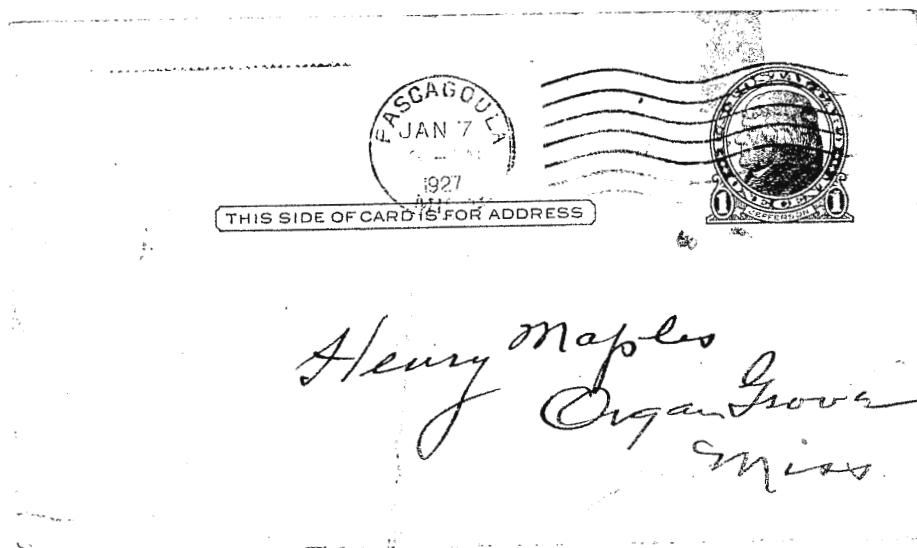 PASCAGOULA
JAN 7
1927
MISS.
1 JEFFERSON 1
THIS SIDE OF CARD IS FOR ADDRESS
Henry Maples
Organ Grove
Miss